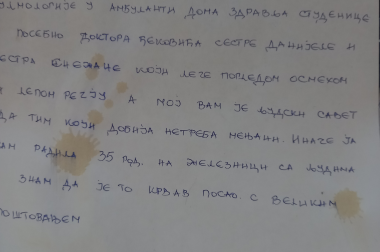 УДНОЛОГИЈЕ У АМБУЛАНТИ ДОМА ЗДРАВЉА СТУДЕНИЦЕ
ПОСЕБНО ДОКТОРА ЂЕКОВИЋА СЕСТРЕ ДАНИЈЕЛЕ И
ЕСТРА СНЕЖАНЕ КОЈИ ЛЕЧЕ ПОГЛЕДОМ ОСМЕХОМ
И ЛЕПОМ РЕЧЈУ А МОЈ ВАМ ЈЕ ЉУДСКИ САВЕТ
ДА ТИМ КОЈИ ДОБИЈА НЕТРЕБА МЕЊАТИ. ИНАЧЕ ЈА
АМ РАДИЛА 35 ГОД. НА ЖЕЛЕЗНИЦИ СА ЉУДИМА
ЗНАМ ДА ЈЕ ТО КРВАВ ПОСАО. С ВЕЛИКИМ
ПОШТОВАЊЕМ